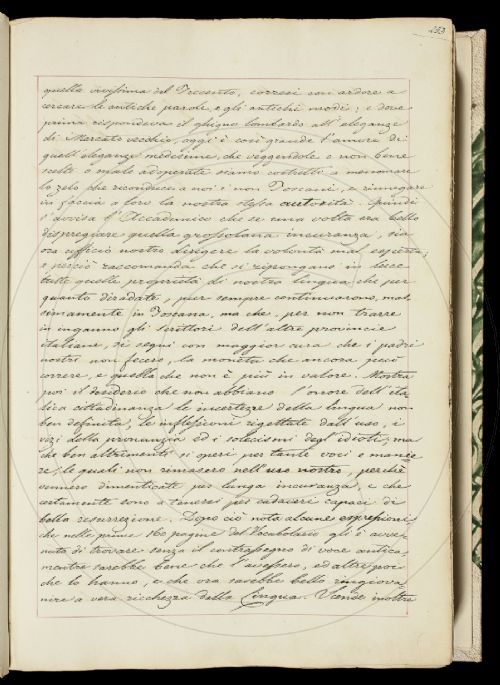 253
quella vivissima del Trecento, corresi con ardore a
cercare le antiche parole, e gli antichi modi; e dove
prima rispondeva il ghigno lombardo all'eleganze
di Mercato vecchio, oggi è così grande l'amore di
quell'eleganze medesime, che veggendole o non bene
scelte o male adoperate siamo costretti a menomare
lo zelo che riconduce a noi i non Toscani, e rinnegare
in faccia a loro la nostra stessa autorità. Quindi
s'avvisa l'Accademico che se una volta era bello
dispregiare quella grossolana incuranza, sia
ora ufficio nostro dirigere la volontà mal esperta;
e perciò raccomanda che si ripongano in luce
tutte quelle proprietà di nostra lingua che per
quanto diradate, pur sempre continuarono, mas
simamente in Toscana, ma che, per non trarre
in inganno gli scrittori dell'altre provincie
italiane, si segni con maggior cura che i padri
nostri non fecero, la moneta che ancora può
correre, e quella che non è più in valore. Mostra
poi il desiderio che non abbiano l'onore dell'ita
lica cittadinanza le incertezze della lingua non
ben definita, le inflessioni rigettate dall'uso, i
vizi della pronunzia ed i solecismi degl'idioti; ma
che ben altrimenti si operi per tante voci e manie
re, le quali non rimasero nell'uso nostro, perchè
vennero dimenticate per lunga incuranza, e che
certamente sono a tenersi per cadaveri capaci di
bella resurrezione. Dopo ciò nota alcune espressioni
che nelle prime 160 pagine del Vocabolario gli è avve
nuto di trovare senza il contrassegno di voce antica,
mentre sarebbe bene che l'avessero, ed altre poi
che lo hanno, e che ora sarebbe bello ringiova
nire a vera ricchezza della Lingua. Vi inoltre